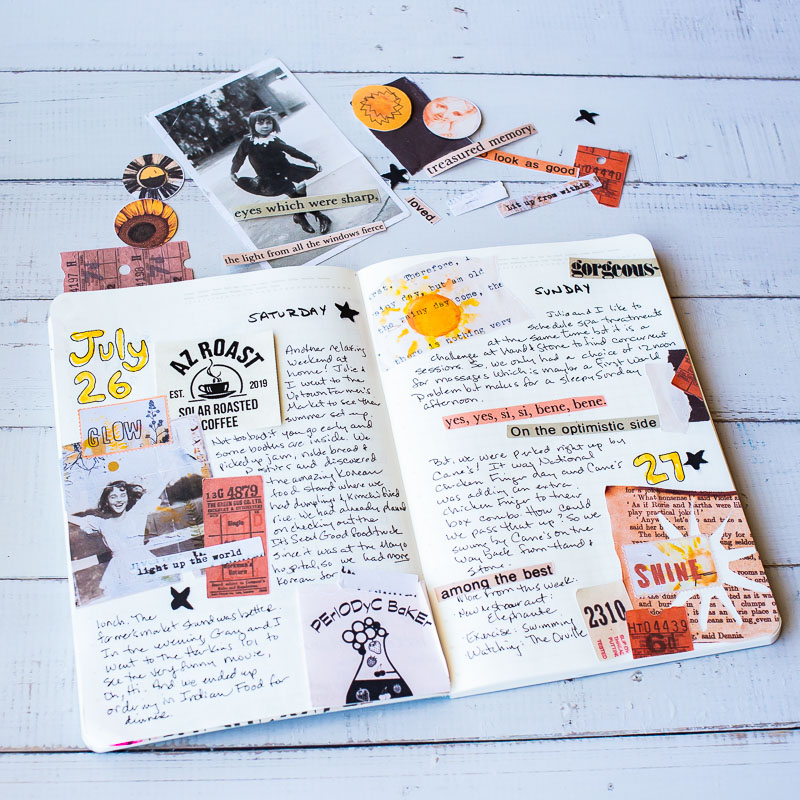 eyes which were sharp,
the light from all the windows fierce
treasured memory.
to look as good
HT04440
lit up from within
loved.
4197
4198
SATURDAY
July
26
AZ ROAST
EST. 2019
SOLAR ROASTED
COFFEE
GLOW
Another relaxing
weekend at
home! Julie &
I went to the
Uptown Farmer's
Market to see the
summer set up.
Not too bad if you go early and
some booths are inside. We
picked up jam, bread &
pastries and discovered
the amazing Korean
food stand where we
had dumplings & Kimchi fried
rice. We had already planned
on checking out the
It's Seoul Good food truck
since it was at the Mayo
hospital, so we had more
Korean for
13G 4879
Single
light up the world
lunch. The
farmer's market stand was better.
In the evening Gary and I
went to the Harkins 101 to
see the very funny movie,
Oh, Hi. And we ended up
ordering in Indian Food for
dinner.
PERIODYC BAKER
gorgeous-
SUNDAY
Therefore, I
rainy day, but am old
the rainy day come, the
there is nothing very
Julie and I like to
schedule spa treatments
at the same time but it is a
challenge at Hand & Stone to find concurrent
sessions. So, we only had a choice of 12 noon
for massages which is maybe a First World
Problem but makes for a sleepy Sunday
afternoon.
yes, yes, si, si, bene, bene.
On the optimistic side
27
But, we were perked right up by
Cane's! It was National
Chicken Finger day and Cane's
was adding an extra
chicken finger to their
box combo. How could
we pass that up? So we
swung by Cane's on the
way back from Hand &
Stone.
among the best
Vibe from this week:
New restaurant:
Elephante
Exercise: Swimming
Watching: The Orville
2310
HT04439
6d
'What nonsense!' said
'As if Rorie and Martha were likely
play practical jokes!'
SHINE
said Dennis.